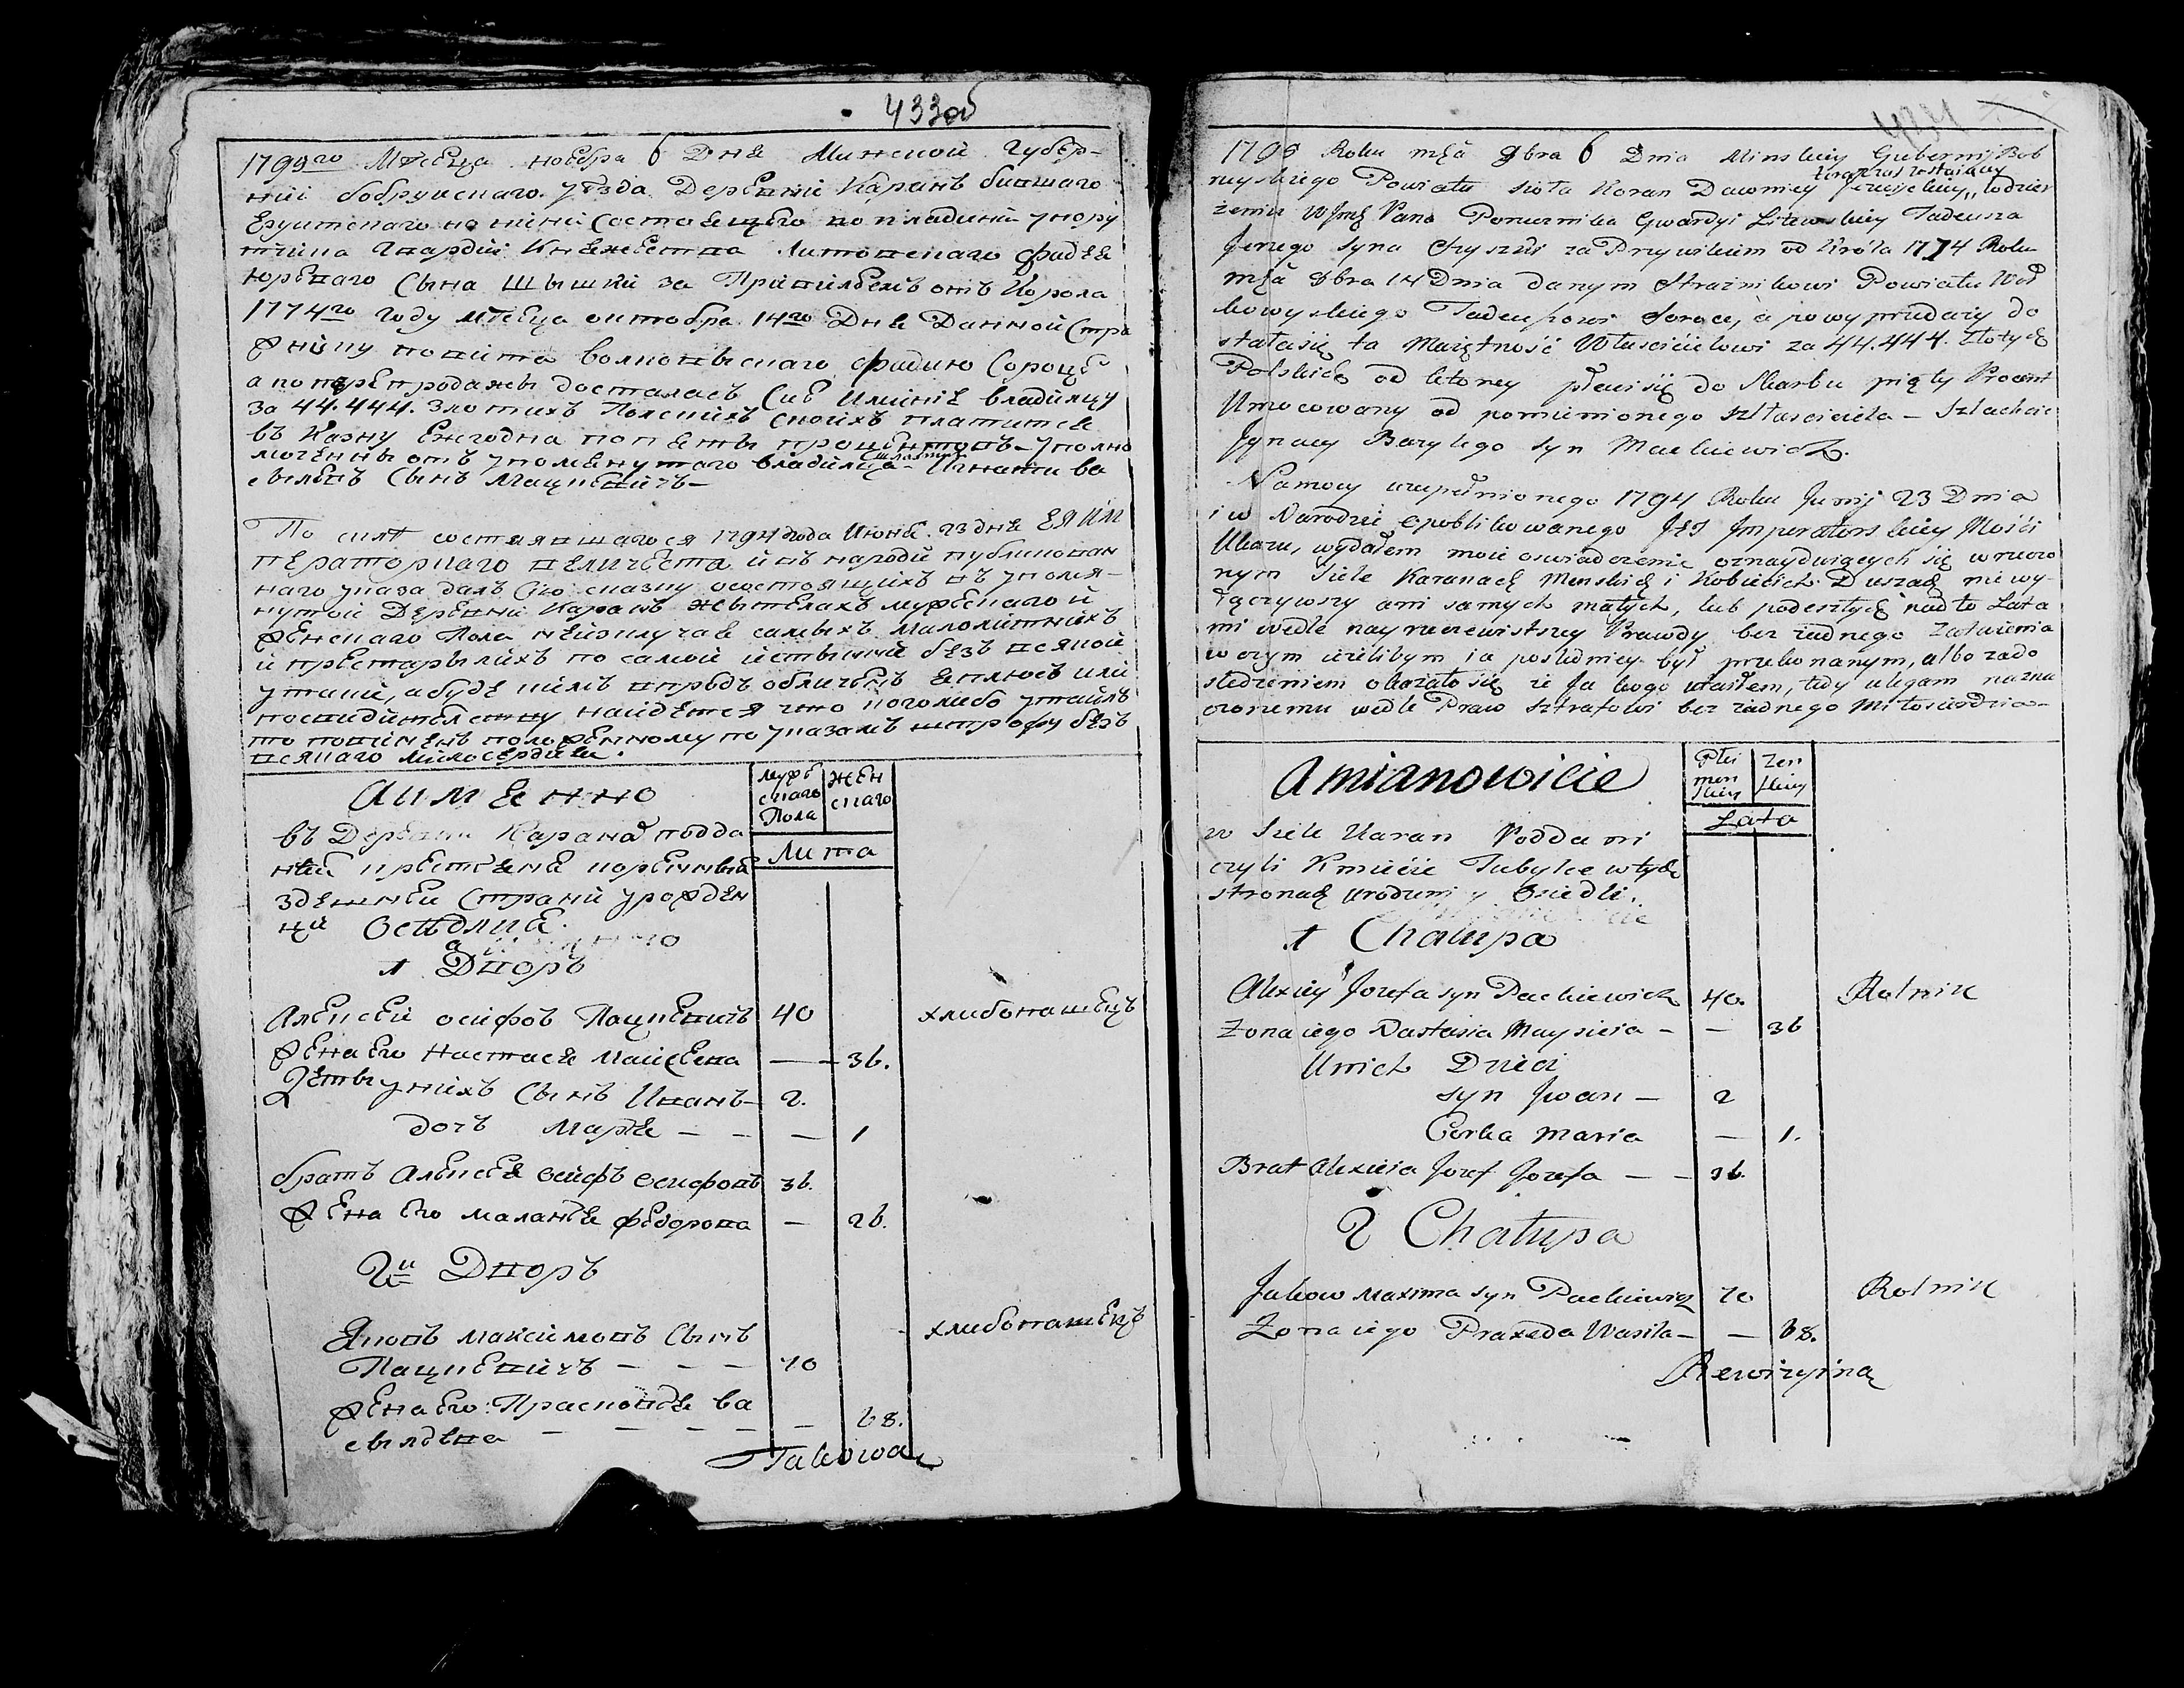 433об
1795го Месеца ноебра 6 Дне Минской Губер-
ний бобруйскаго уезда Деревни Каранъ бившаго
Езуитскаго на нини Состоещого во владини
гвардий Кнежества Литовскаго фадее
юреваго Сына Шышки за Привилеемъ отъ Короля
1774го Году месеца октобра 14го Дне Данной Стра
жнику повита волковыскаго фадею Сороце
а по перепродажы досталасъ Сие имение владилцу
за 44.444. злотихъ Полскихъ съ коихъ платитсе
въ Казну Ежегодна по петы процентовъ - уполно
моченны отъ упоменутаго владилца - шляхтич Игнати ва
сылевъ Сынъ Мацкевичъ -
По силе состаявшагося 1794 года Июня 23 дне ЕЯ ИМ
ператорскаго величества и въ народи публикован
наго указа далъ Сію сказку о состоящихъ въ упомя-
нутой Деревни Каранъ жытелахъ мужескаго и
женскаго Пола неизключае самыхъ малолитнихъ
и престарылихъ по самой истынни безъ всякой
утайки, а буде кимъ впредъ обличенъ
по свидителству найдется что кого либо утаилъ
то повиненъ положенному по указамъ штрофу безъ
всякаго милосердие.
Аименно
мужескаго Пола
женскаго
Лита
въ Деревни Карана подда
ней крестяне коренныя
здешней Страни урожден
ци Оседлие.
1 Дворъ
Алексей осифовъ Пацкевичъ 40 хлибопашецъ
Жена Его Настасе Майсеева — 36.
Деты у нихъ Сынъ Иванъ — 2.
дочъ Маре — — — 1
братъ Алексея осифъ осифовъ 36.
Жена Его маланъе федорова — 26.
2й Дворъ
Яковъ максимовъ Сынъ хлибопашецъ
Пацкевичъ — — — 70
Жена Его Прасковъе ва
сылевна — — — — — 68.
Takowa
1795 Roku mśa 9bra 6 Dnia Minskiey Gubernij Bob
ruyskiego Powiatu sioła Koran Dawniey Jezujckiey,, teraz zostaiącey w dzier
żeniu WJmć Pana Porucznika Gwardyi Litewskiey Tadeusza
Jerzego syna Szyszki za Przywileiem od Króla 1774 Roku
mśa 8bra 14 Dnia danym Strażnikowi Powiatu Woł
kowyskiego Tadeuszowi Soroce, a po wyprzedaży do
stała się ta Maiętność Właścicielowi za 44.444. Złotych
Polskich od ktorey płaci się do Skarbu piąty Procent
Umocowany od pomienionego Właściciela — Szlachcic
Jgnacy Bazylego syn Mackiewicz.
Na mocy uzupełnionego 1794 Roku Junij 23 Dnia
i w Narodzie opublikowanego JEJ Jmperatorskiey Mości
Ukazu, wydałem moie oswiadczenie o znayduiących się w rzeczo
nym Siele Karanach Menskich i Kobiecich Duszach nie wy
łączywszy ani samych małych, lub podeszłych nad to Lata
mi wedle nayrzeczewistszey Prawdy bez żadnego Zataienia
w czym ieżelibym ia posledniey był przekonanym, albo za do
śledzeniem okazało się że Ja kogo utaiłem, tedy ulegam nazna
czonemu wedle Praw sztrafowi bez żadnego Miłosierdzia —
Amianowicie
Płci męnskiey
Zenskiey
Lata
w Siele Karan Poddani
czyli Kmiecie Tubylce w tych
stronach urodzeni y Osiedli.
1 Chałupa
Alexiey Jozefa syn Packiewicz 40. Rolnik
Zona iego Nastasia Maysieia — — 36
U nich Dzieci
syn Jwan — 2
Corka Maria — 1.
Brat Alexieia Jozef Jozefa — — 36.
2 Chałupa
Jakow Maxima syn Packiewicz 70 Rolnik
Zona iego Praxeda Wasila — — 68.
Rewizyina